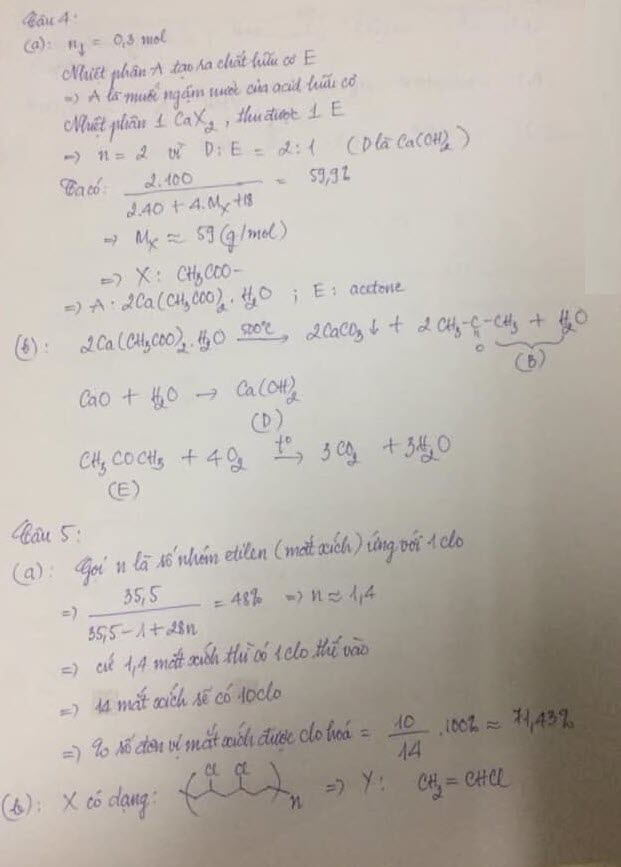 Câu 4:
(a): n↓ = 0,3 mol
Nhiệt phân A tạo ra chất hữu cơ E
=> A là muối ngậm nước của acid hữu cơ
Nhiệt phân 1 CaX₂, thu được 1 E
=> n = 2 vì D:E = 2:1 (D là Ca(OH)₂)
Ta có: 2.100 / (2.40 + 4.Mx + 18) = 59,9%
=> Mx ≈ 59 (g/mol)
=> X: CH₃COO-
=> A: 2Ca(CH₃COO)₂.H₂O ; E: acetone
(b): 2Ca(CH₃COO)₂.H₂O 500°C→ 2CaCO₃↓ + 2CH₃-C-CH₃ + H₂O
O
(B)
CaO + H₂O → Ca(OH)₂
(D)
CH₃COCH₃ + 4O₂ t°→ 3CO₂ + 3H₂O
(E)
Câu 5:
(a): Gọi n là số nhóm etilen (mắt xích) ứng với 1 clo
=> 35,5 / (35,5-1+28n) = 48% => n ≈ 1,4
=> cứ 1,4 mắt xích thì có 1 clo thế vào
=> 14 mắt xích sẽ có 10clo
=> % số đơn vị mắt xích được clo hoá = 10/14 .100% ≈ 71,43%
(b): X có dạng: ( Cl Cl )n => Y: CH₂=CHCl